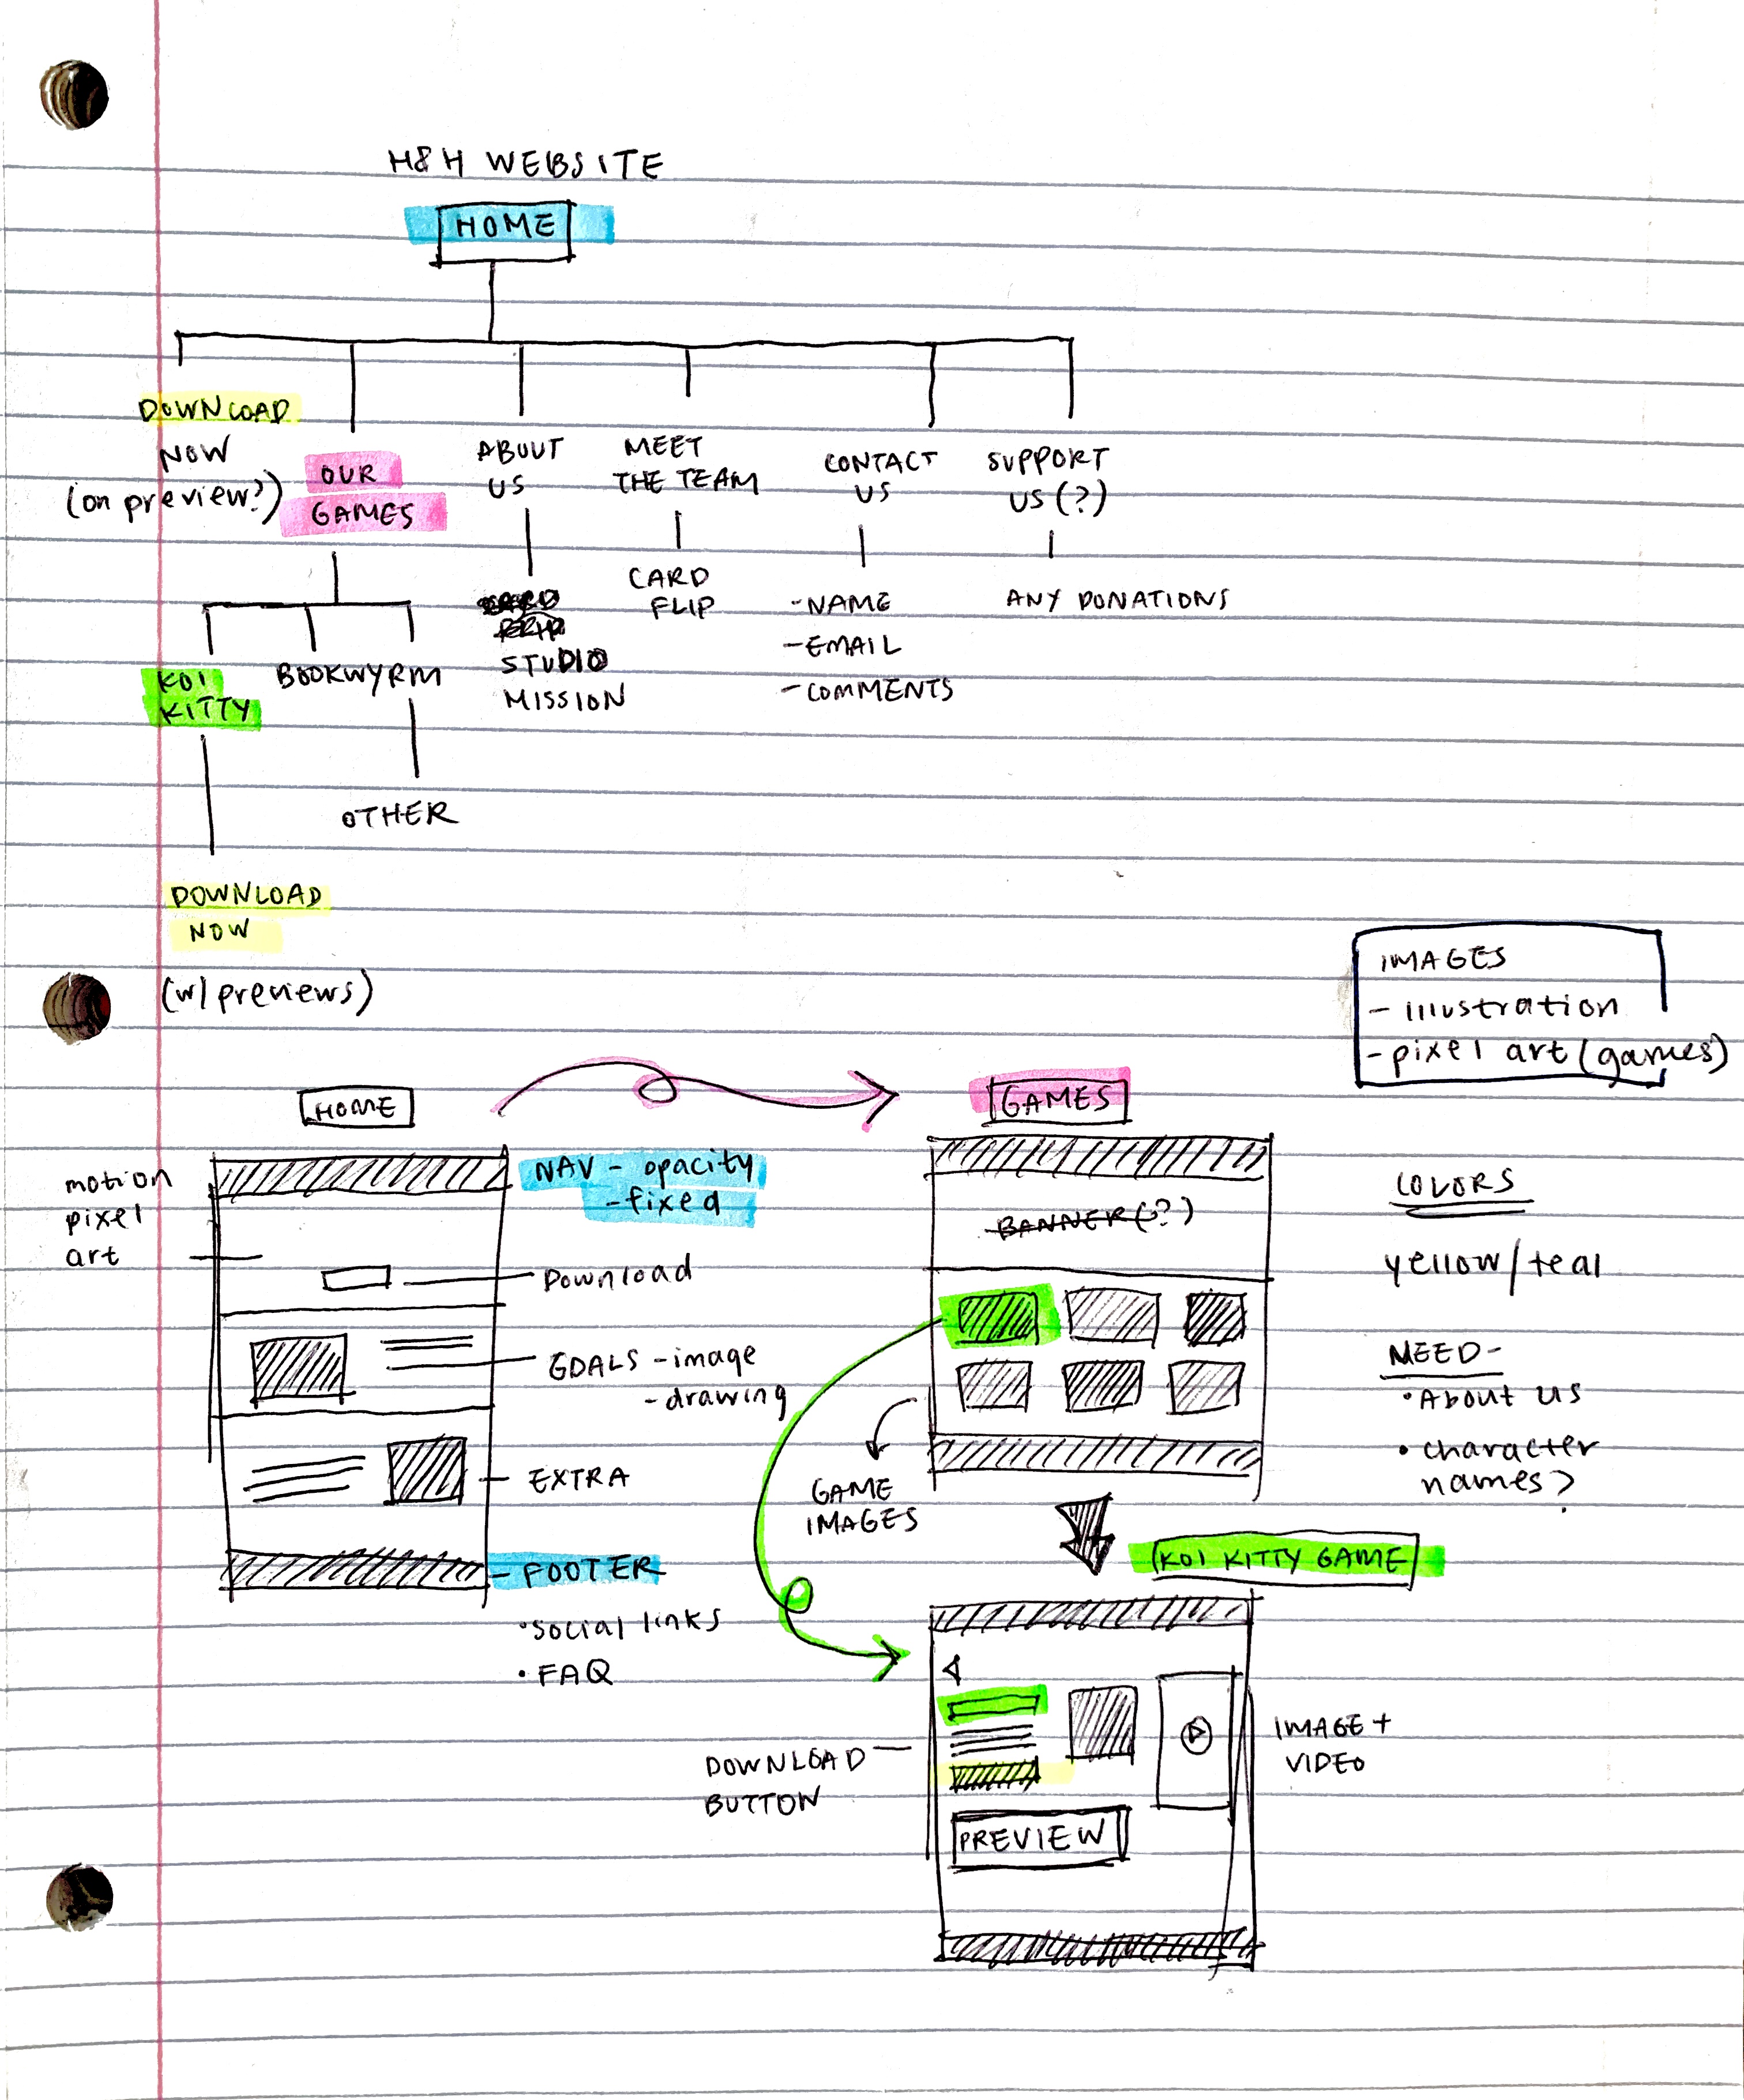 H&H WEBSITE
HOME
DOWNLOAD
NOW
(on preview?)
OUR
GAMES
ABOUT
US
MEET
THE TEAM
CONTACT
US
SUPPORT
US (?)
STUDIO
MISSION
CARD
FLIP
-NAME
-EMAIL
-COMMENTS
ANY DONATIONS
KOI
KITTY
BOOKWYRM
OTHER
DOWNLOAD
NOW
(w/ previews)
IMAGES
- illustration
- pixel art (games)
HOME
motion
pixel
art
NAV - opacity
- fixed
Download
GOALS - image
- drawing
EXTRA
- FOOTER
• social links
• FAQ
GAMES
BANNER(?)
GAME
IMAGES
COLORS
yellow/teal
NEED-
• About us
• character
names?
KOI KITTY GAME
DOWNLOAD
BUTTON
PREVIEW
IMAGE +
VIDEO